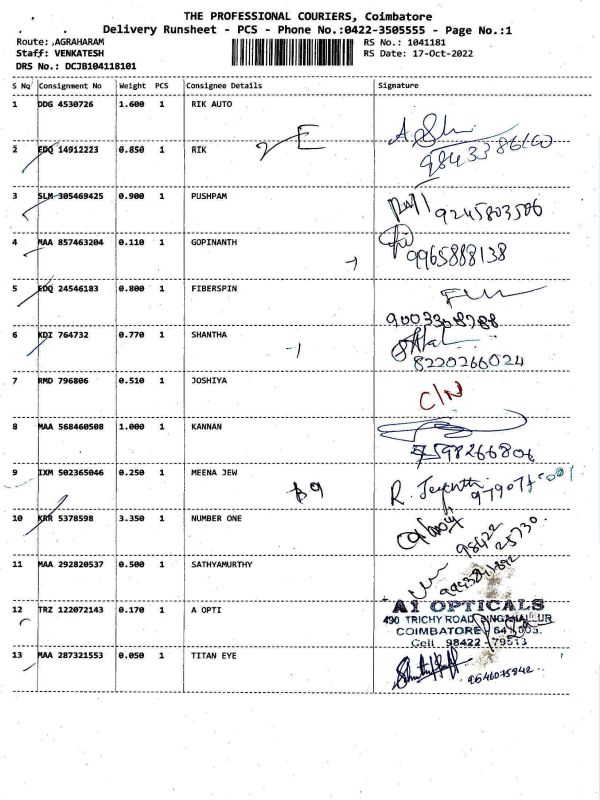 THE PROFESSIONAL COURIERS, Coimbatore
Delivery Runsheet - PCS - Phone No.:0422-3505555 - Page No.:1
Route: AGRAHARAM RS No.: 1041181
Staff: VENKATESH RS Date: 17-Oct-2022
DRS No.: DCJB104118101
S No Consignment No Weight PCS Consignee Details Signature
1 DDG 4530726 1.600 1 RIK AUTO
2 EDQ 14912223 0.850 1 RIK E
3 SLM 305469425 0.900 1 PUSHPAM 9245803506
4 MAA 857463204 0.110 1 GOPINANTH 9965888138
5 EDQ 24546183 0.800 1 FIBERSPIN
6 KDI 764732 0.770 1 SHANTHA 8220266024
7 RMD 796806 0.510 1 JOSHIYA C/N
8 MAA 568460508 1.000 1 KANNAN
9 IXM 502365046 0.250 1 MEENA JEW
10 KRR 5378598 3.350 1 NUMBER ONE 98422 25730
11 MAA 292820537 0.500 1 SATHYAMURTHY
12 TRZ 122072143 0.170 1 A OPTI
A1 OPTICALS
490 TRICHY ROAD, SINGANALLUR
COIMBATORE 641 005.
Cell 98422 79513
13 MAA 287321553 0.050 1 TITAN EYE